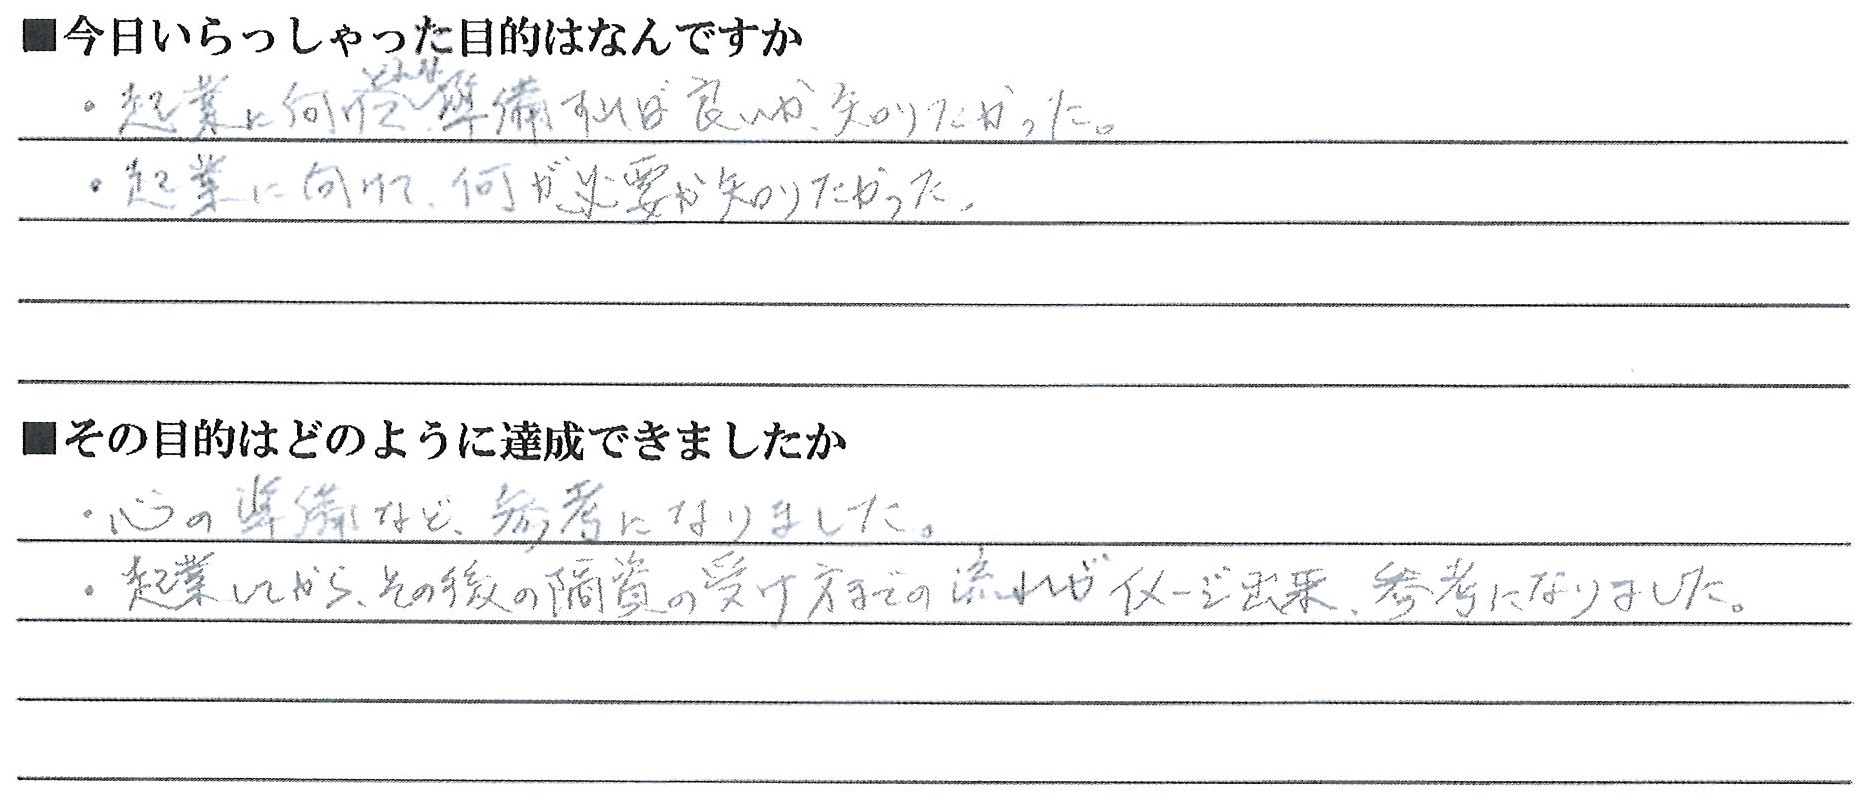 ■今日いらっしゃった目的はなんですか
・起業に向けて、準備すれば良いか、知りたかった。
・起業に向けて、何が必要か知りたかった。
■その目的はどのように達成できましたか
・心の準備など、参考になりました。
・起業してから、その後の融資の受け方までの流れがイメージ出来、参考になりました。